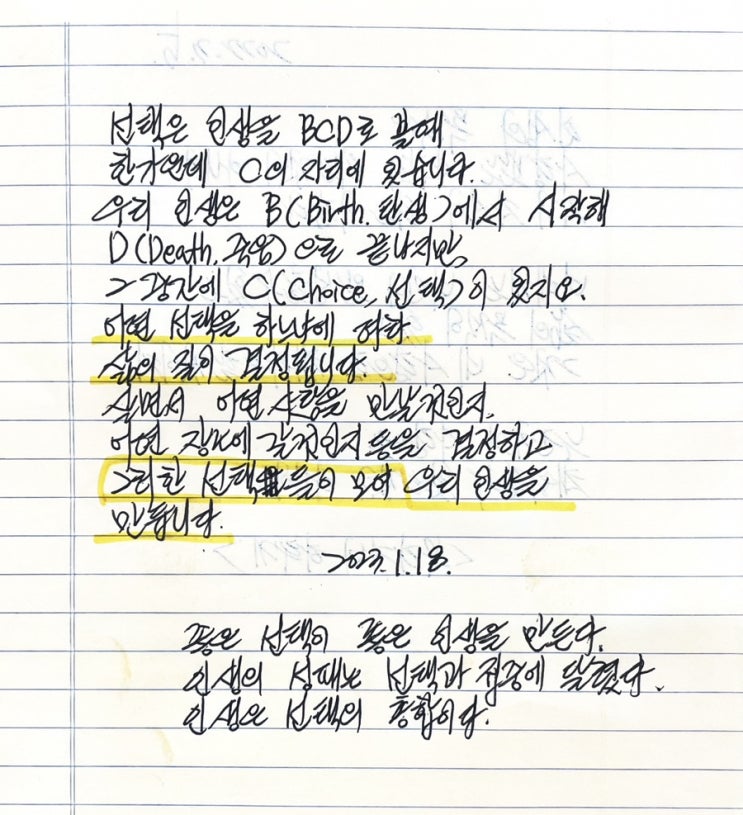 선택은 인생을 BCD로 볼때
한가운데 C의 자리에 있습니다.
우리 인생은 B(Birth, 탄생)에서 시작해
D(Death, 죽음)으로 끝나지만,
그 중간에 C(Choice, 선택)이 있지요.
어떤 선택을 하느냐에 따라
삶의 질이 결정됩니다.
살면서 어떤 사람을 만날것인지,
어떤 장소에 갈것인지 등을 결정하고
그러한 선택들이 모여 우리 인생을
만듭니다.
2023.1.18.
좋은 선택이 좋은 인생을 만든다.
인생의 성패는 선택과 집중에 달렸다.
인생은 선택의 총합이다.